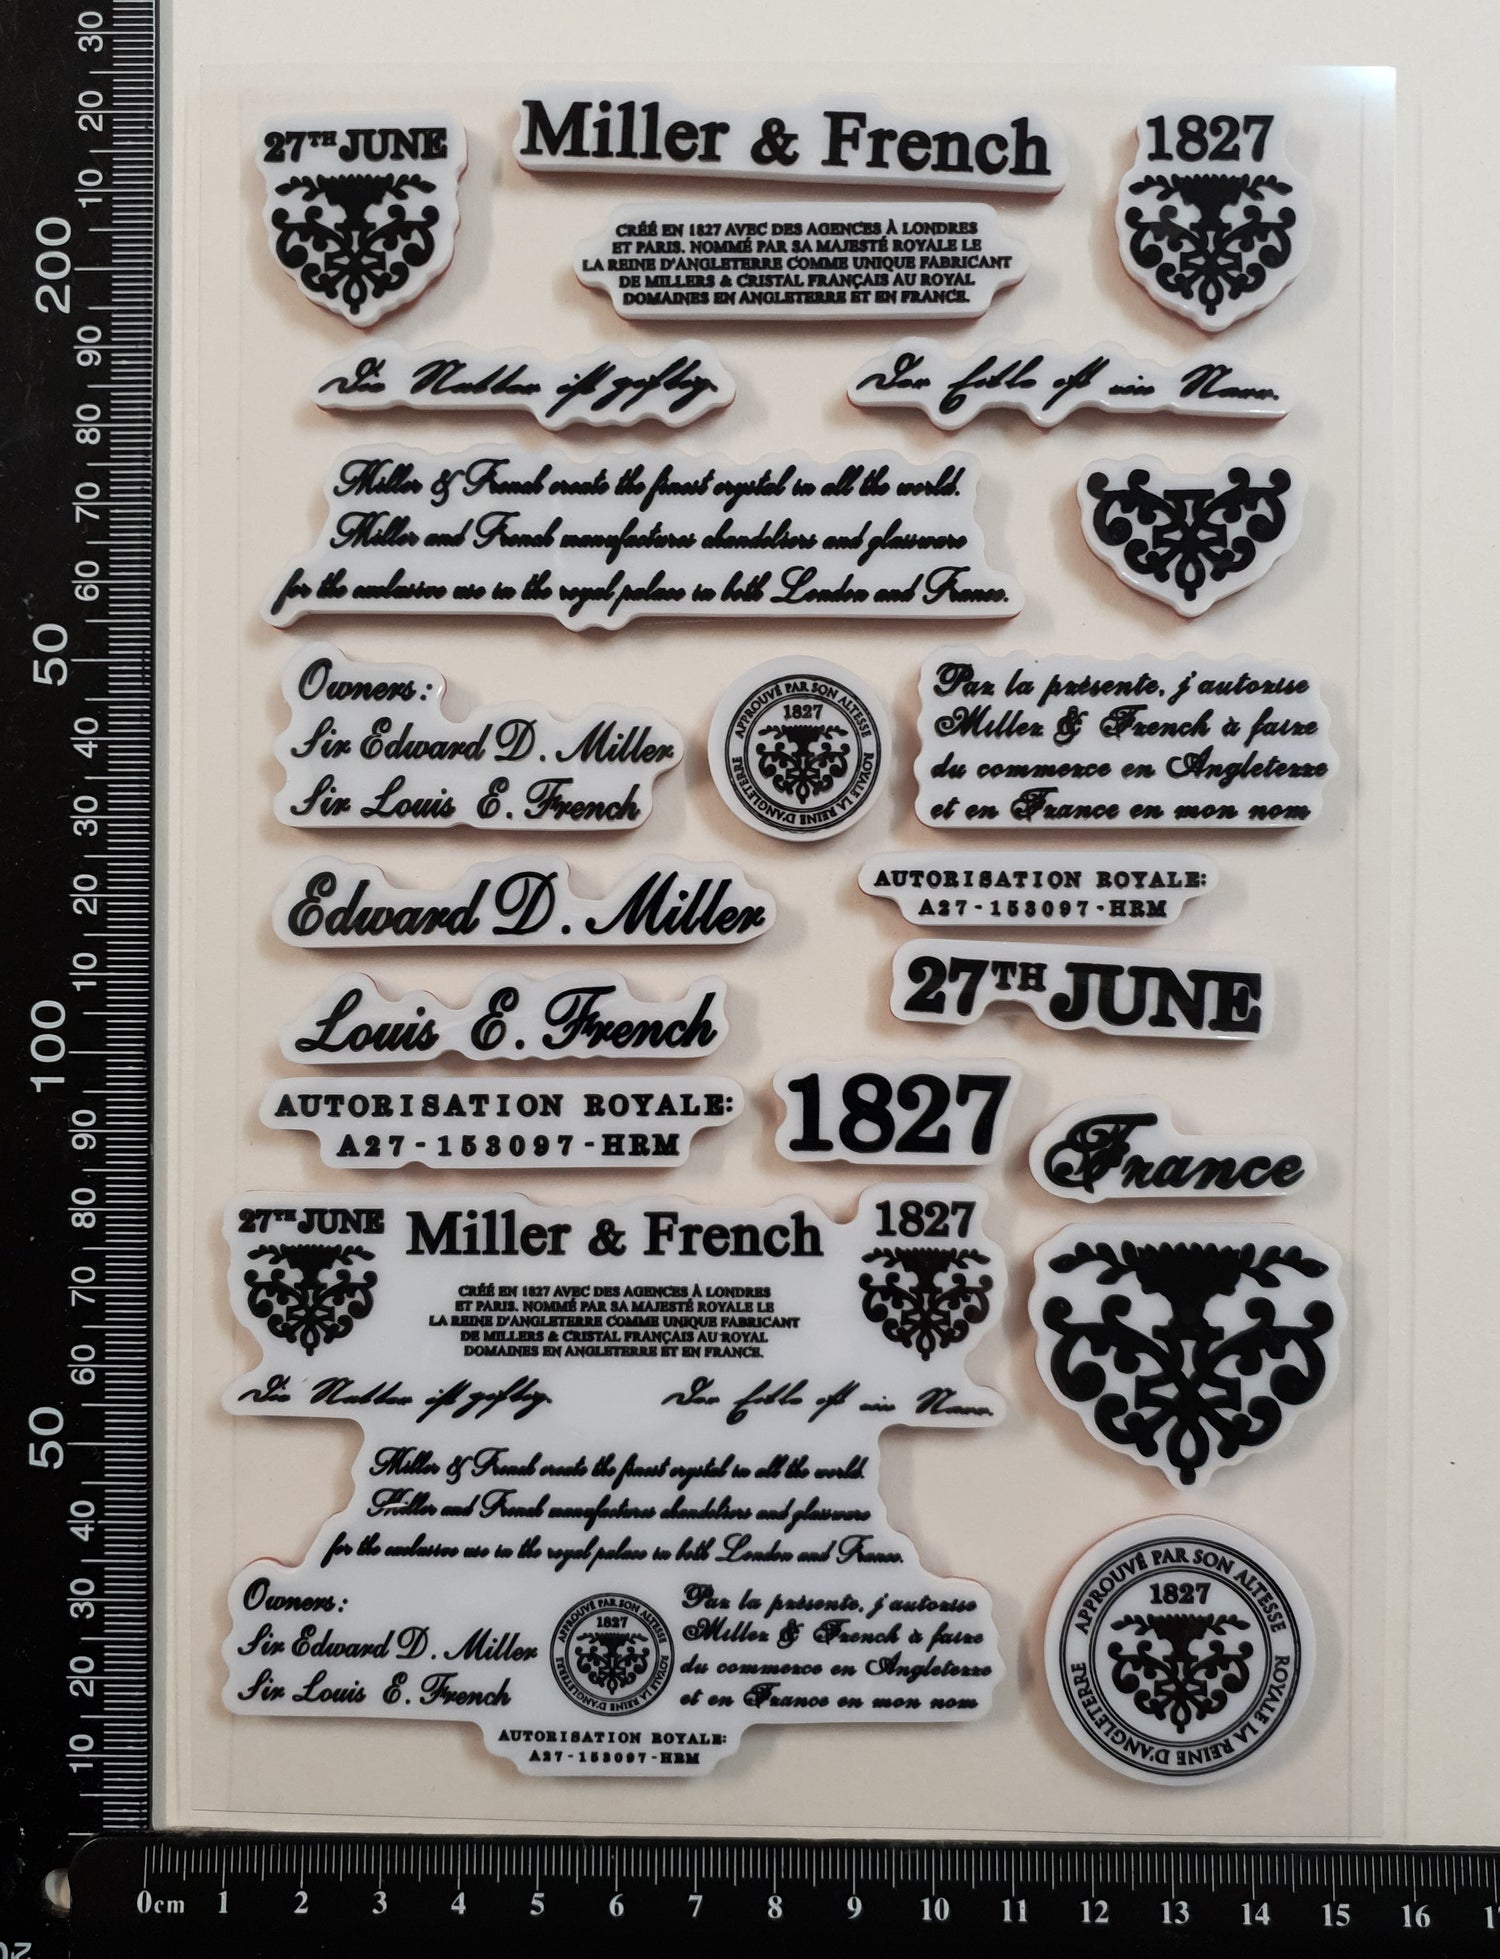 27TH JUNE
Miller & French
1827
CRÉÉ EN 1827 AVEC DES AGENCES À LONDRES
ET PARIS. NOMMÉ PAR SA MAJESTÉ ROYALE LE
LA REINE D'ANGLETERRE COMME UNIQUE FABRICANT
DE MILLERS & CRISTAL FRANÇAIS AU ROYAL
DOMAINES EN ANGLETERRE ET EN FRANCE.
Die Natter ist geftig.
Der Eitle ist ein Narr.
Miller & French create the finest crystal in all the world.
Miller and French manufactures chandeliers and glassware
for the exclusive use in the royal palace in both London and France.
Owners:
Sir Edward D. Miller
Sir Louis E. French
APPROUVÉ PAR SON ALTESSE ROYALE LA REINE D'ANGLETERRE
1827
Par la présente, j'autorise
Miller & French à faire
du commerce en Angleterre
et en France en mon nom
Edward D. Miller
AUTORISATION ROYALE:
A27-153097-HRM
27TH JUNE
Louis E. French
AUTORISATION ROYALE:
A27-153097-HRM
1827
France
27TH JUNE
Miller & French
1827
CRÉÉ EN 1827 AVEC DES AGENCES À LONDRES
ET PARIS. NOMMÉ PAR SA MAJESTÉ ROYALE LE
LA REINE D'ANGLETERRE COMME UNIQUE FABRICANT
DE MILLERS & CRISTAL FRANÇAIS AU ROYAL
DOMAINES EN ANGLETERRE ET EN FRANCE.
Die Natter ist geftig.
Der Eitle ist ein Narr.
Miller & French create the finest crystal in all the world.
Miller and French manufactures chandeliers and glassware
for the exclusive use in the royal palace in both London and France.
Owners:
Sir Edward D. Miller
Sir Louis E. French
APPROUVÉ PAR SON ALTESSE ROYALE LA REINE D'ANGLETERRE
1827
Par la présente, j'autorise
Miller & French à faire
du commerce en Angleterre
et en France en mon nom
AUTORISATION ROYALE:
A27-153097-HRM
APPROUVÉ PAR SON ALTESSE ROYALE LA REINE D'ANGLETERRE
1827
30
20
10
200
90
80
70
60
50
40
30
20
10
100
90
80
70
60
50
40
30
20
10
0cm 1 2 3 4 5 6 7 8 9 10 11 12 13 14 15 16